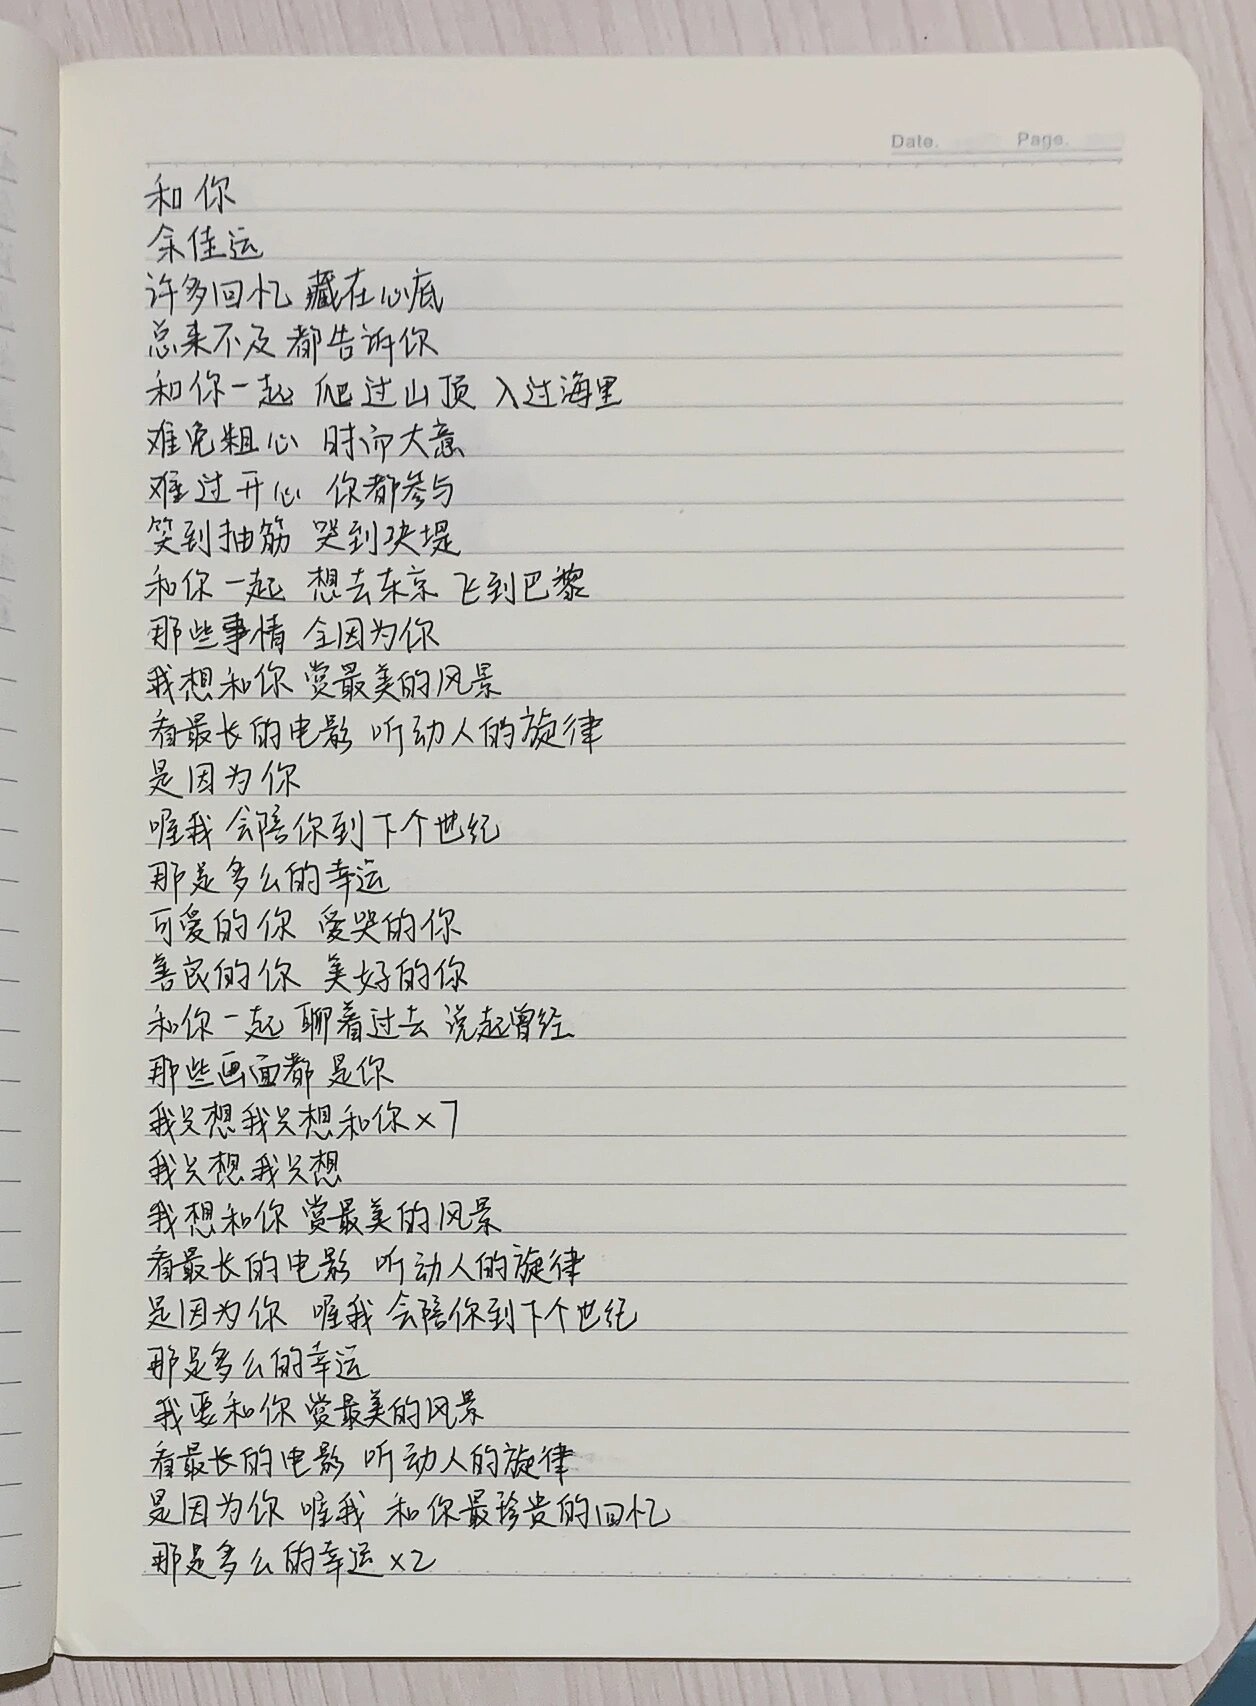 Date. Page.
和你
余佳运
许多回忆 藏在心底
总来不及 都告诉你
和你一起 爬过山顶 入过海里
难免粗心 时而大意
难过开心 你都参与
笑到抽筋 哭到决堤
和你一起 想去东京 飞到巴黎
那些事情 全因为你
我想和你 赏最美的风景
看最长的电影 听动人的旋律
是因为你
喔我 会陪你到下个世纪
那是多么的幸运
可爱的你 爱哭的你
善良的你 美好的你
和你一起 聊着过去 说起曾经
那些画面都是你
我只想我只想和你×7
我只想我只想
我想和你 赏最美的风景
看最长的电影 听动人的旋律
是因为你 喔我 会陪你到下个世纪
那是多么的幸运
我要和你 赏最美的风景
看最长的电影 听动人的旋律
是因为你 喔我 和你最珍贵的回忆
那是多么的幸运×2